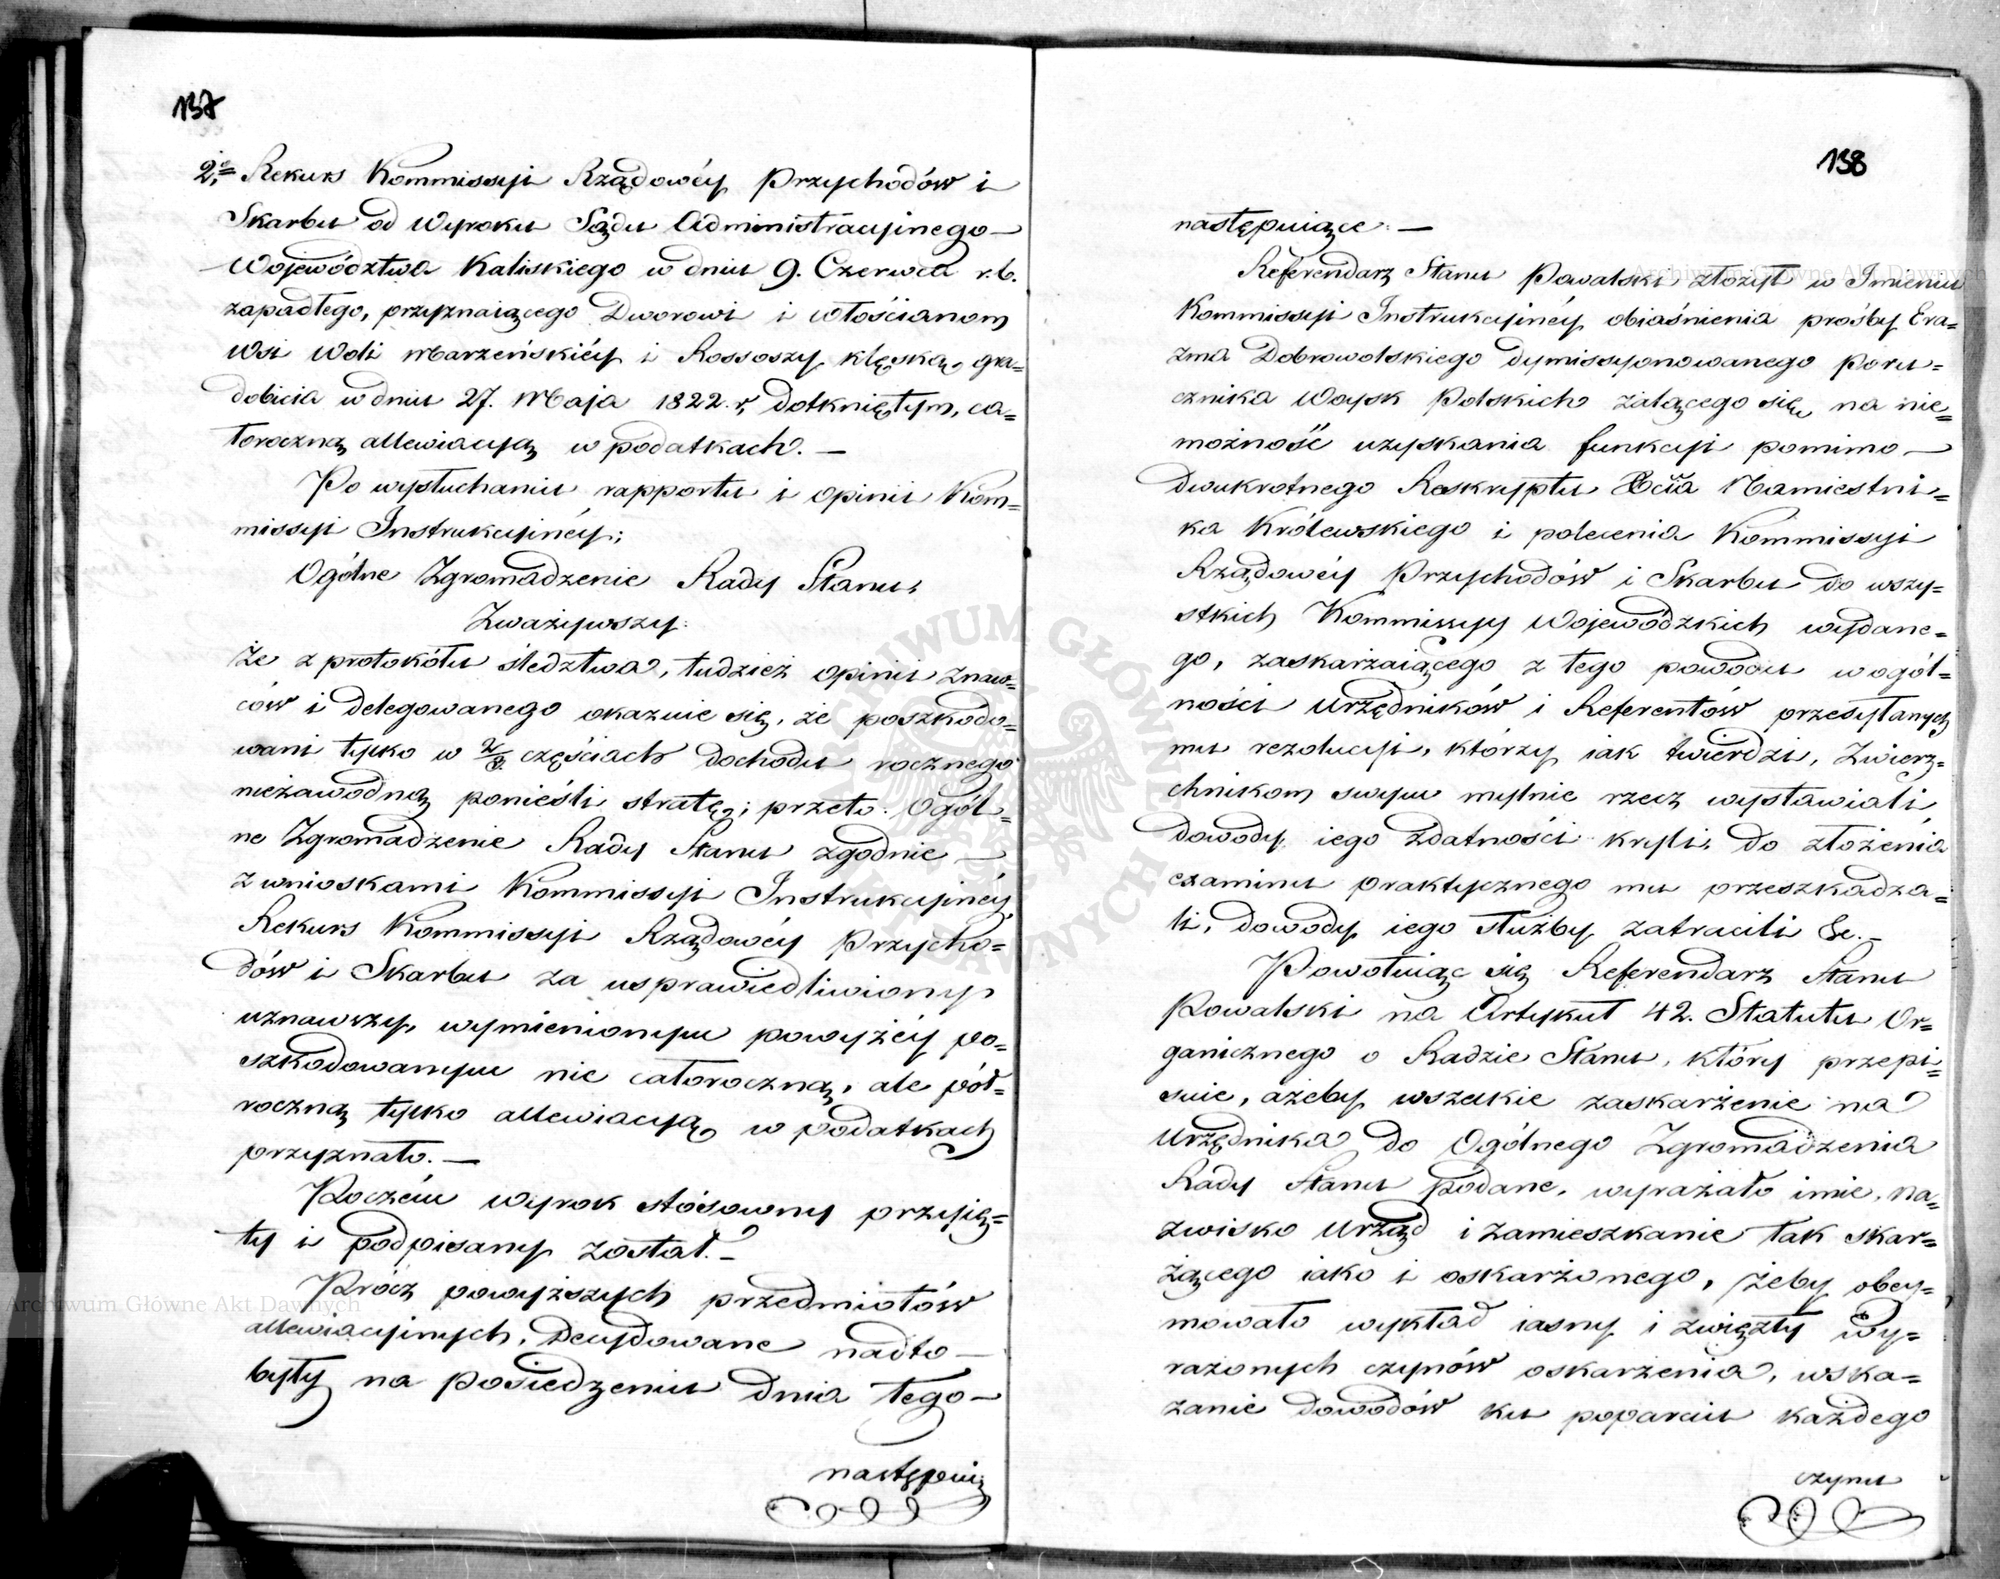 137
2;o Rekurs Kommissyi Rządowéy Przychodów i
Skarbu od Wyroku Sądu Administracyinego —
Województwa Kaliskiego w dniu 9. Czerwca r.b.
zapadłego, przyznaiącego Dworowi i włościanom
Wsi Woli Marzeńskiéy i Rossoszy klęską gra=
dobicia w dniu 27. Maja 1822. r, dotkniętym, ca=
łoroczną allewiacyją w podatkach. —
Po wysłuchaniu rapportu i opinii Kom=
missyi Instrukcyinéy;
Ogólne Zgromadzenie Rady Stanu,
Zważywszy:
że z protokółu śledztwa, tudzież opinii znaw=
ców i delegowanego okazuie się, że poszkodo=
wani tylko w częściach dochodu rocznego
niezawodną ponieśli stratę; przeto: Ogól=
ne Zgromadzenie Rady Stanu zgodnie —
z wnioskami Kommissyi Instrukcyinéy
Rekurs Kommissyi Rządowéy Przycho=
dów i Skarbu za usprawiedliwiony
uznawszy, wymienionym powyżéy po=
szkodowanym nie całoroczną, ale pół=
roczną tylko allewiacyją w podatkach
przyznało. —
Poczém wyrok stósowny przyię=
ty i podpisany został. —
Prócz powyższych przedmiotów
allewiacyinych, decydowane nadto —
były na posiedzeniu dnia tego —
następuią
138
następuiące: —
Referendarz Stanu Powalski złożył w Imieniu
Kommissyi Instrukcyinéy obiaśnienia prośby Era=
zma Dobrowolskiego dymissyonowanego Poru=
cznika Woysk Polskich żalącego się na nie=
możność uzyskania funkcyi pomimo —
dwukrotnego Reskryptu Xcia Namiestni=
ka Królewskiego i polecenia Kommissyi
Rządowéy Przychodów i Skarbu do wszy=
stkich Kommissyy Wojewódzkich wydane=
go, zaskarżaiącego z tego powodu w ogól=
ności Urzędników i Referentów przesyłanych
mu rezolucyi, którzy iak twierdzi, Zwierz=
chnikom swym mylnie rzecz wystawiali,
dowody iego zdatności kryli, do złożenia
examinu praktycznego mu przeszkadza=
li, dowody iego służby zatracili &c. —
Powołuiąc się Referendarz Stanu
Powalski na Artykuł 42. Statutu Or=
ganicznego o Radzie Stanu, który przepi=
suie, ażeby wszelkie zaskarżenie na
Urzędnika do Ogólnego Zgromadzenia
Rady Stanu podane, wyrażało imie, na=
zwisko Urząd i zamieszkanie tak skar=
żącego iako i oskarżonego, żeby obey=
mowało wykład iasny i zwięzły wy=
rażonych czynów oskarżenia, wska=
zanie dowodów ku poparciu każdego
czynu
Archiwum Główne Akt Dawnych
Archiwum Główne Akt Dawnych
ARCHIWUM GŁÓWNE AKT DAWNYCH